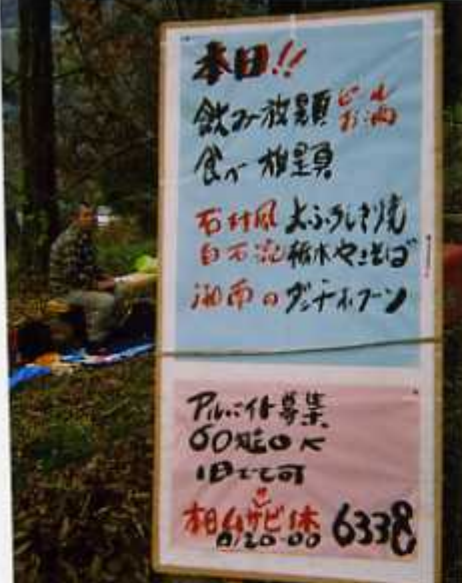 本日!!
飲み放題 ビール お酒
食べ放題
石村風 よふうしき焼
白石流 栃木やきそば
湘南の ダッチオーブン
アルバイト募集
60才OK
1日でも可
本日 サービス 6338